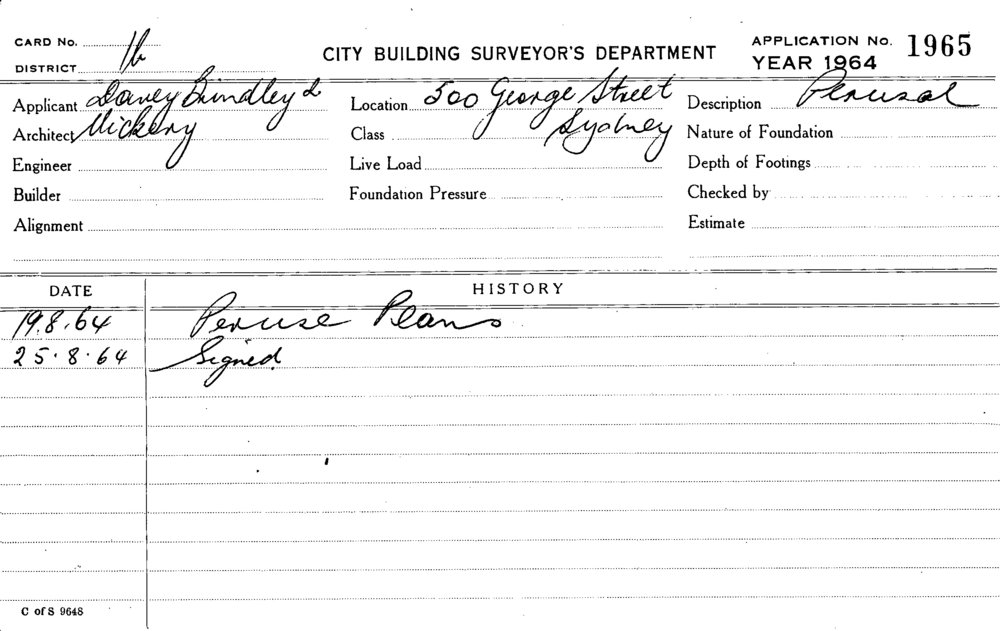 CARD No.
DISTRICT 1b
CITY BUILDING SURVEYOR'S DEPARTMENT
APPLICATION No. 1965
YEAR 1964
Applicant Davey Brindley &
Vickery
Location 300 George Street
Sydney
Description Perusal
Architect
Class
Nature of Foundation
Engineer
Live Load
Depth of Footings
Builder
Foundation Pressure
Checked by
Alignment
Estimate
DATE HISTORY
19.8.64 Peruse Plans
25.8.64 Signed
C of S 9648